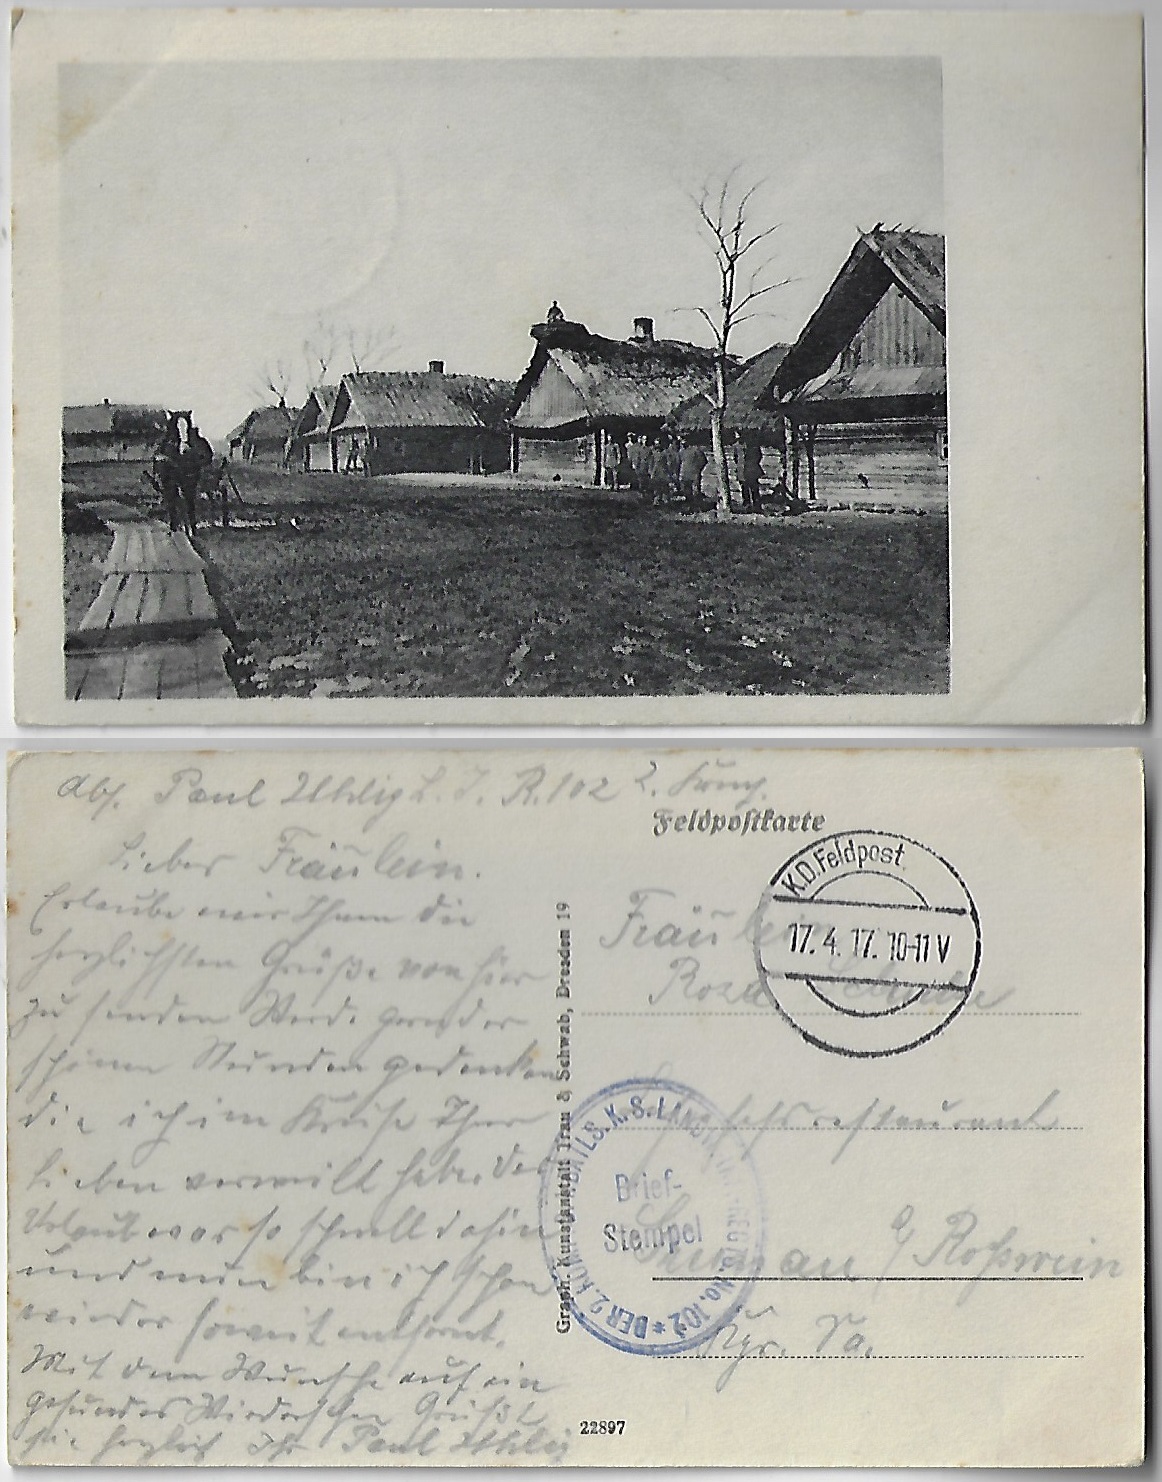 Abs. Paul Uhlig L. I. R. 102 2. Komp.
Feldpostkarte
Liebes Fräulein.
Erlaube mir Ihnen die
herzlichsten Grüße von hier
zu senden Werde gern der
schönen Stunden gedenken
die ich im Kreise Ihrer
Lieben verweilt habe. Der
Urlaub war so schnell dahin
und nun bin ich schon
wieder soweit entfernt.
Mit dem Wunsche auf ein
gesundes Wiedersehen Grüßt
sie herzlich Ihr Paul Uhlig
Graph. Kunstanstalt Trau & Schwab, Dresden 19
K.D. Feldpost.
17. 4. 17. 10-11 V
Fräulein
Rosa
DER 2. KOMP. BATLS. K. S. LANDST. REG No. 102 *
Brief-
Stempel
a/ Roßwein
Kgr. Sa.
22897